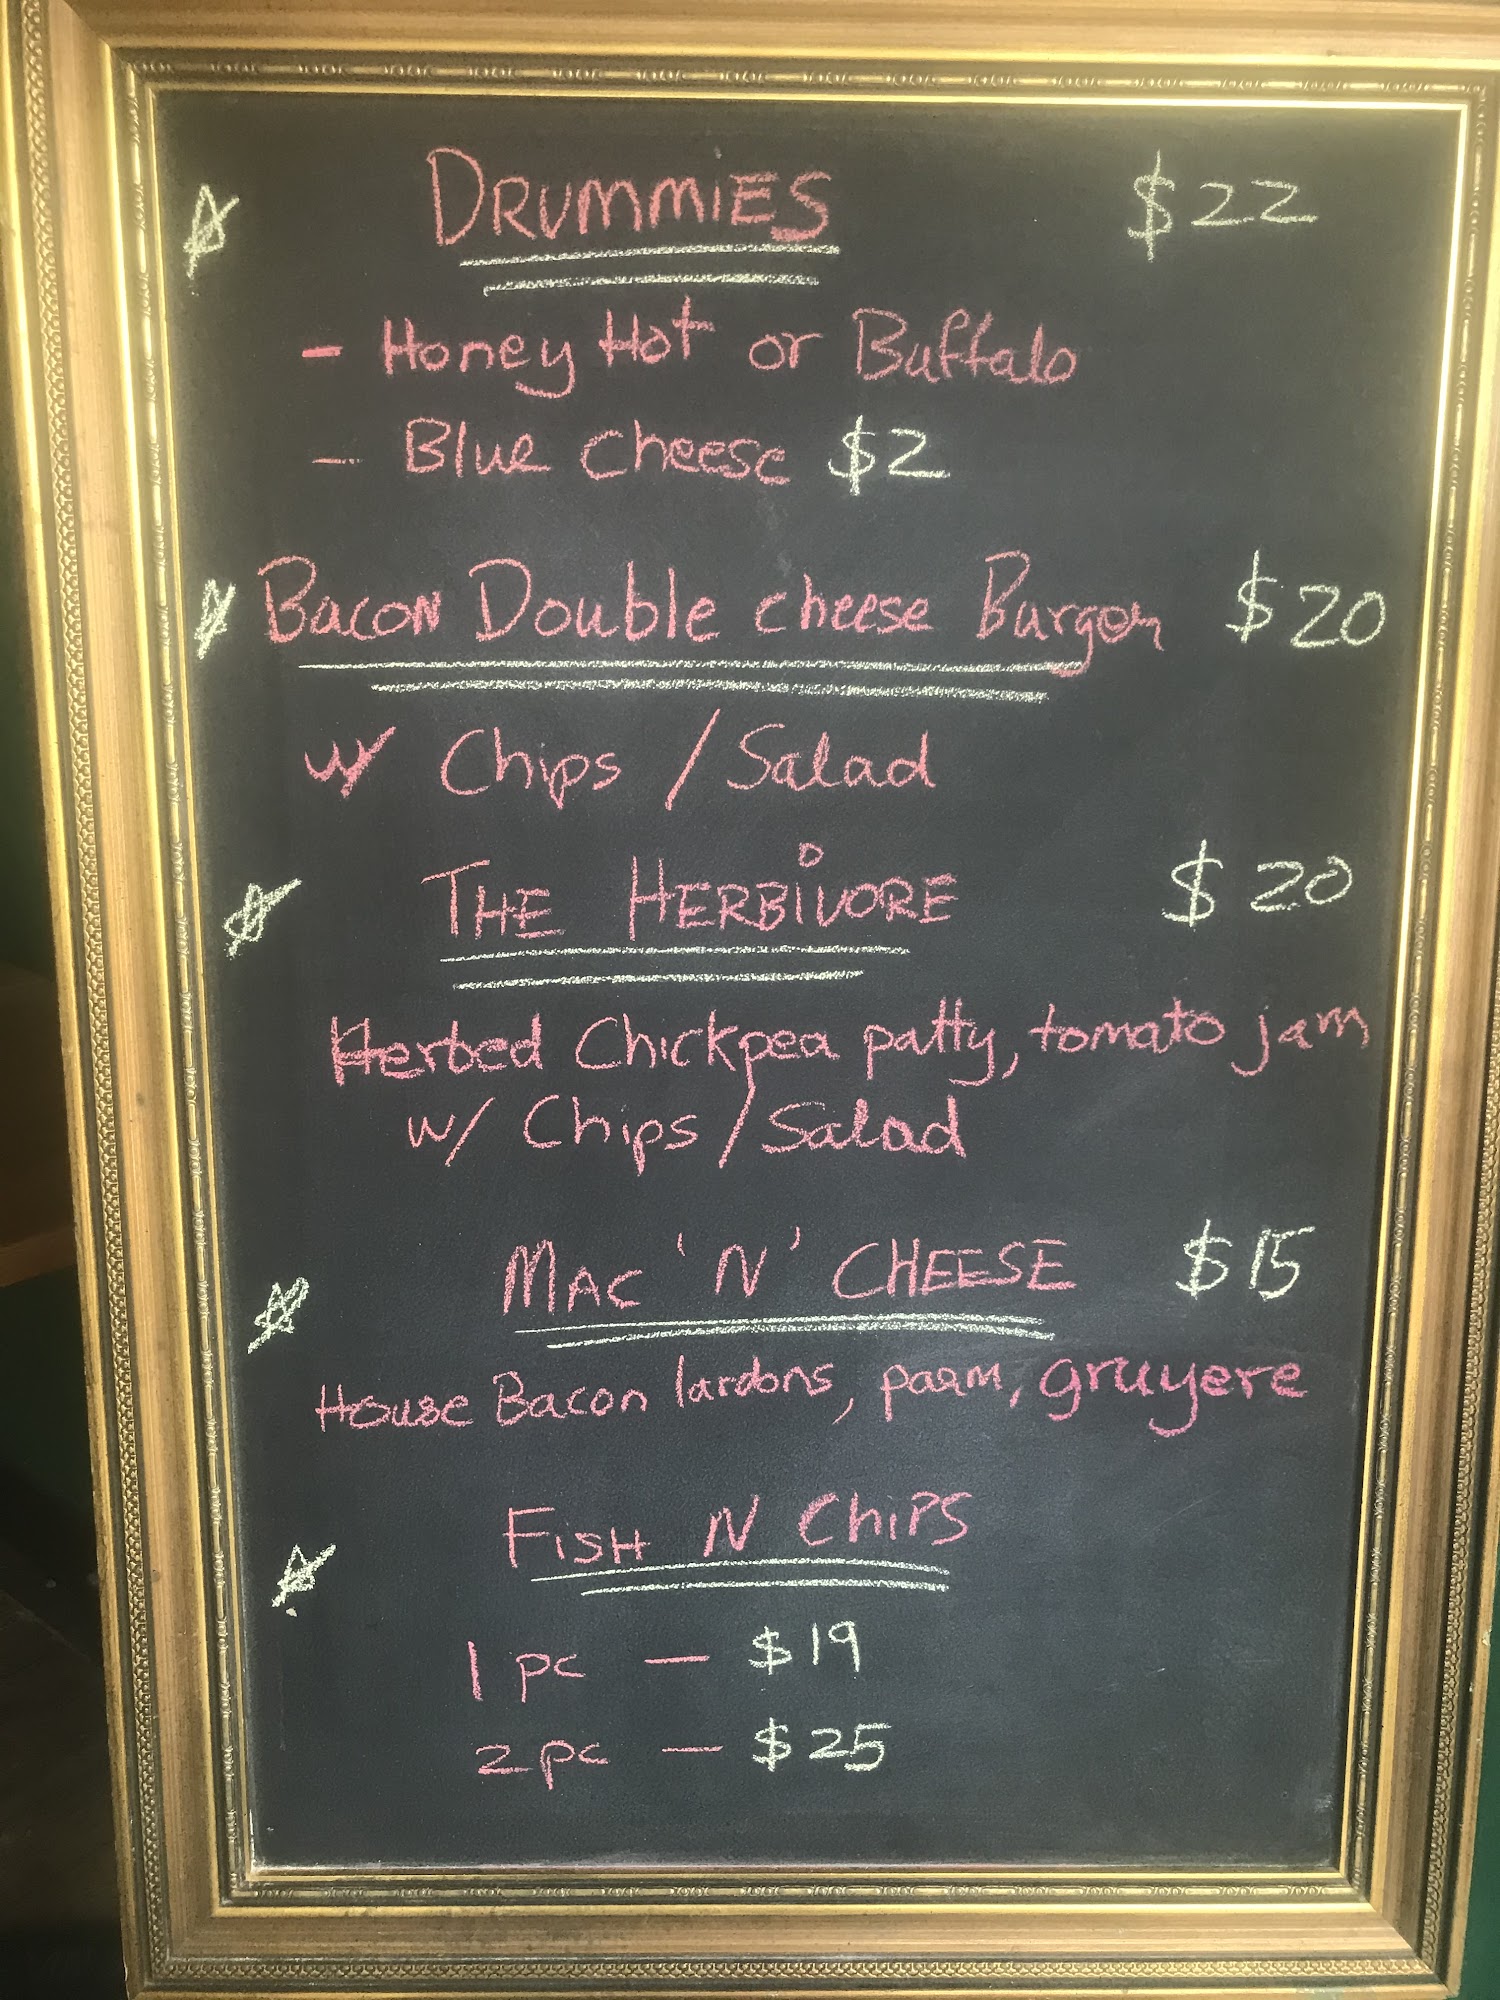 DRUMMIES $22
- Honey Hot or Buffalo
- Blue cheese $2
Bacon Double cheese Burger $20
w/ Chips / Salad
THE HERBIVORE $20
Herbed Chickpea patty, tomato jam
w/ Chips / Salad
MAC 'N' CHEESE $15
House Bacon lardons, parm, gruyere
FISH N CHIPS
1 pc — $19
2 pc — $25